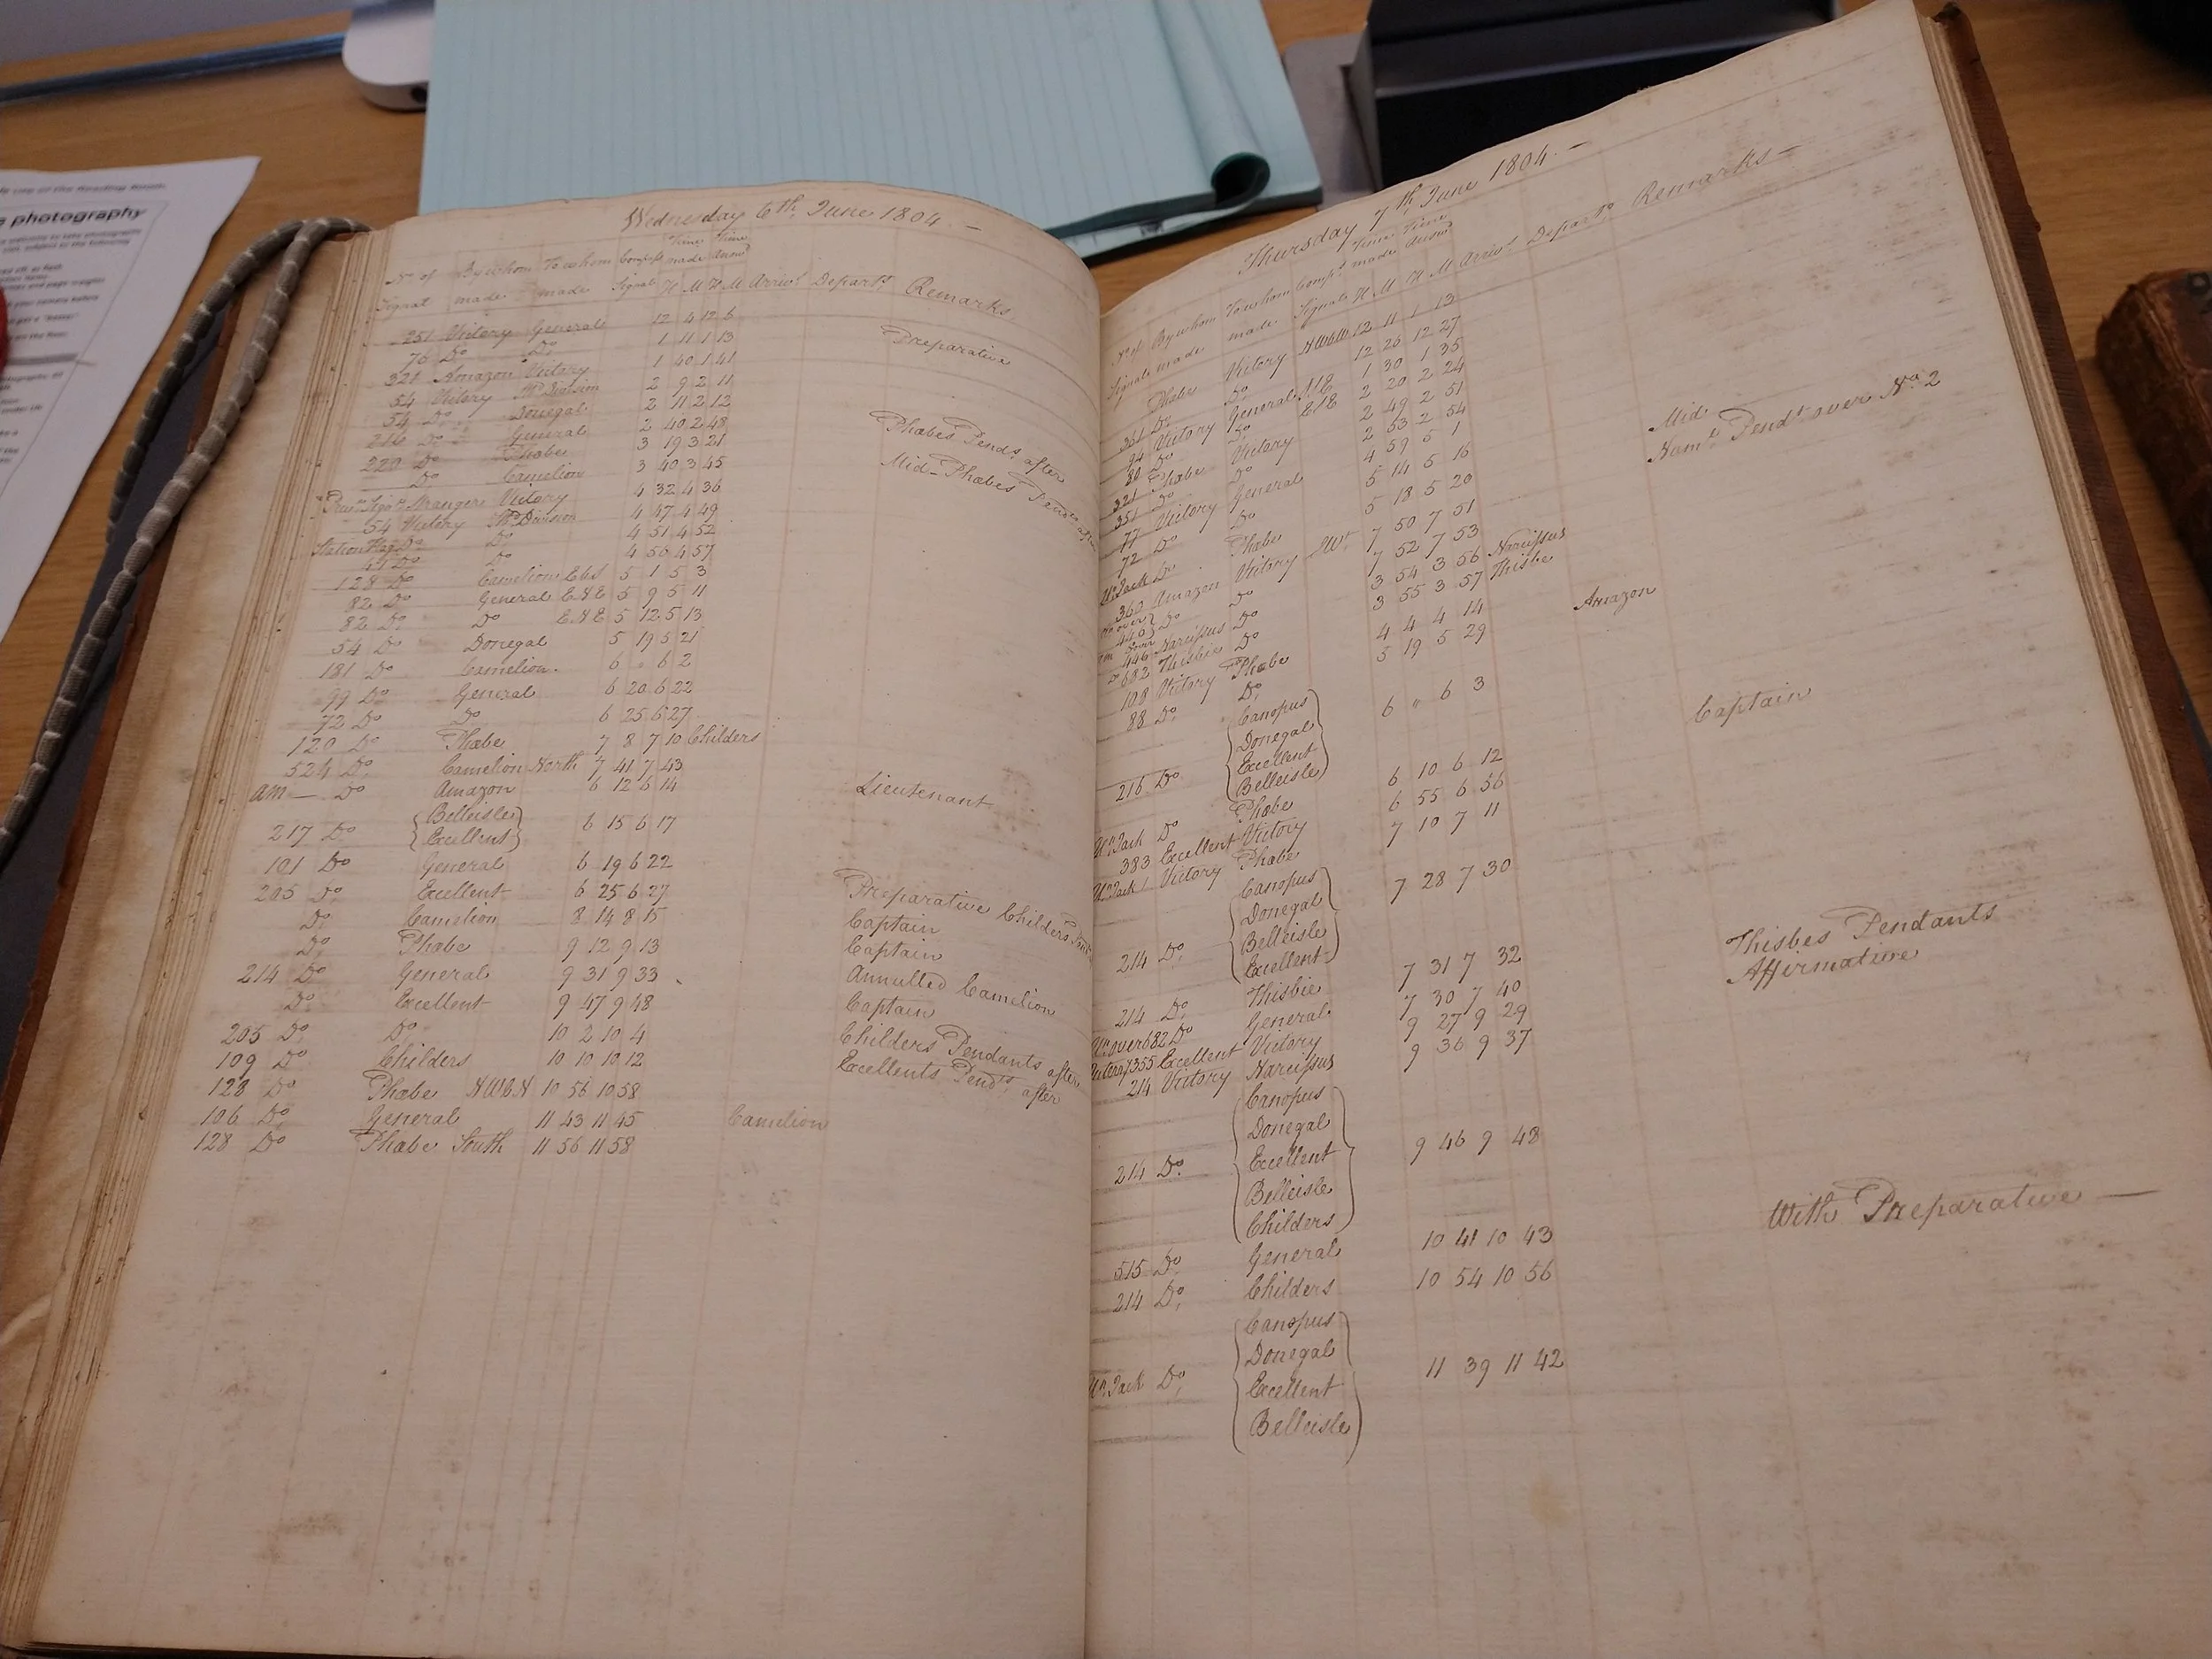 photography
Wednesday 6th, June 1804. -
Time Time
No of By whom To whom Comps made Answd
Signal made made Signal H M H M Arrivl Departe Remarks
251 Victory General 12 4 12 6
76 Do Do 1 11 1 13 Preparative
321 Amazon Victory 1 40 1 41
54 Victory Division 2 9 2 11
54 Do Donegal 2 11 2 12
216 Do General 2 40 2 48
220 Do Phœbe 3 19 3 21 Phœbes Pends, after
Do Camelion 3 40 3 45 Mid - Phœbes Pends after
Stranger Victory 4 32 4 36
54 Victory Division 4 47 4 49
Do Do 4 51 4 52
Do Do 4 56 4 57
128 Do Camelion EbS 5 1 5 3
82 Do General ENE 5 9 5 11
82 Do Do ENE 5 12 5 13
54 Do Donegal 5 19 5 21
181 Do Camelion. 6 " 6 2
99 Do General 6 20 6 22
72 Do Do 6 25 6 27
120 Do Phœbe 7 8 7 10 Childers
524 Do Camelion North 7 41 7 43
am — Do Amazon 6 12 6 14 Lieutenant
Belleisle
217 Do Excellent 6 15 6 17
101 Do General 6 19 6 22
205 Do Excellent 6 25 6 27 Preparative Childers
Do Camelion 8 14 8 15 Captain
Do Phœbe 9 12 9 13 Captain
214 Do General 9 31 9 33 Annulled Camelion
Do Excellent 9 47 9 48 Captain
205 Do Do 10 2 10 4 Childers Pendants after
109 Do Childers 10 10 10 12 Excellents Pends, after
128 Do Phœbe NWbN 10 56 10 58
106 Do General 11 43 11 45 Camelion
128 Do Phœbe South 11 56 11 58
Thursday 7th, June 1804. -
Time Time
No of By whom To whom Comps made Answd
Signals made made Signals H M H M Arrivl Departe Remarks -
Phœbe Victory NWbW 12 11 1 13
361 Do Do 12 26 12 27
94 Victory General NE 1 30 1 35
80 Do Do ENE 2 20 2 24
321 Phœbe Victory 2 49 2 51 Mid.
351 Do Do 2 53 2 54 Numl Pendt over No 2
77 Victory General 4 59 5 1
72 Do Do 5 14 5 16
Un. Jack Do Phœbe 5 18 5 20
360 Amazon Victory SWt 7 50 7 51
440 Do Do 7 52 7 53
446 Narcissus Do 3 54 3 56 Narcissus
682 Thisbie Do 3 55 3 57 Thisbe
108 Victory Phœbe 4 4 4 14 Amazon
88 Do Do 5 19 5 29
Canopus
Donegal 6 " 6 3
Excellent
216 Do Belleisle Captain
Un. Jack Do Phœbe 6 10 6 12
383 Excellent Victory 6 55 6 56
Un. Jack Victory Phœbe 7 10 7 11
Canopus
Donegal 7 28 7 30
Belleisle
214 Do. Excellent
214 Do. Thisbie 7 31 7 32 Thisbes Pendants
over 682 Do General. 7 30 7 40 Affirmative
355 Excellent Victory 9 27 9 29
214 Victory Narcissus 9 36 9 37
Canopus
Donegal
214 Do. Excellent 9 46 9 48
Belleisle
Childers
515 Do. General 10 41 10 43 With Preparative —
214 Do, Childers 10 54 10 56
Canopus
Donegal
Un. Jack Do, Excellent 11 39 11 42
Belleisle